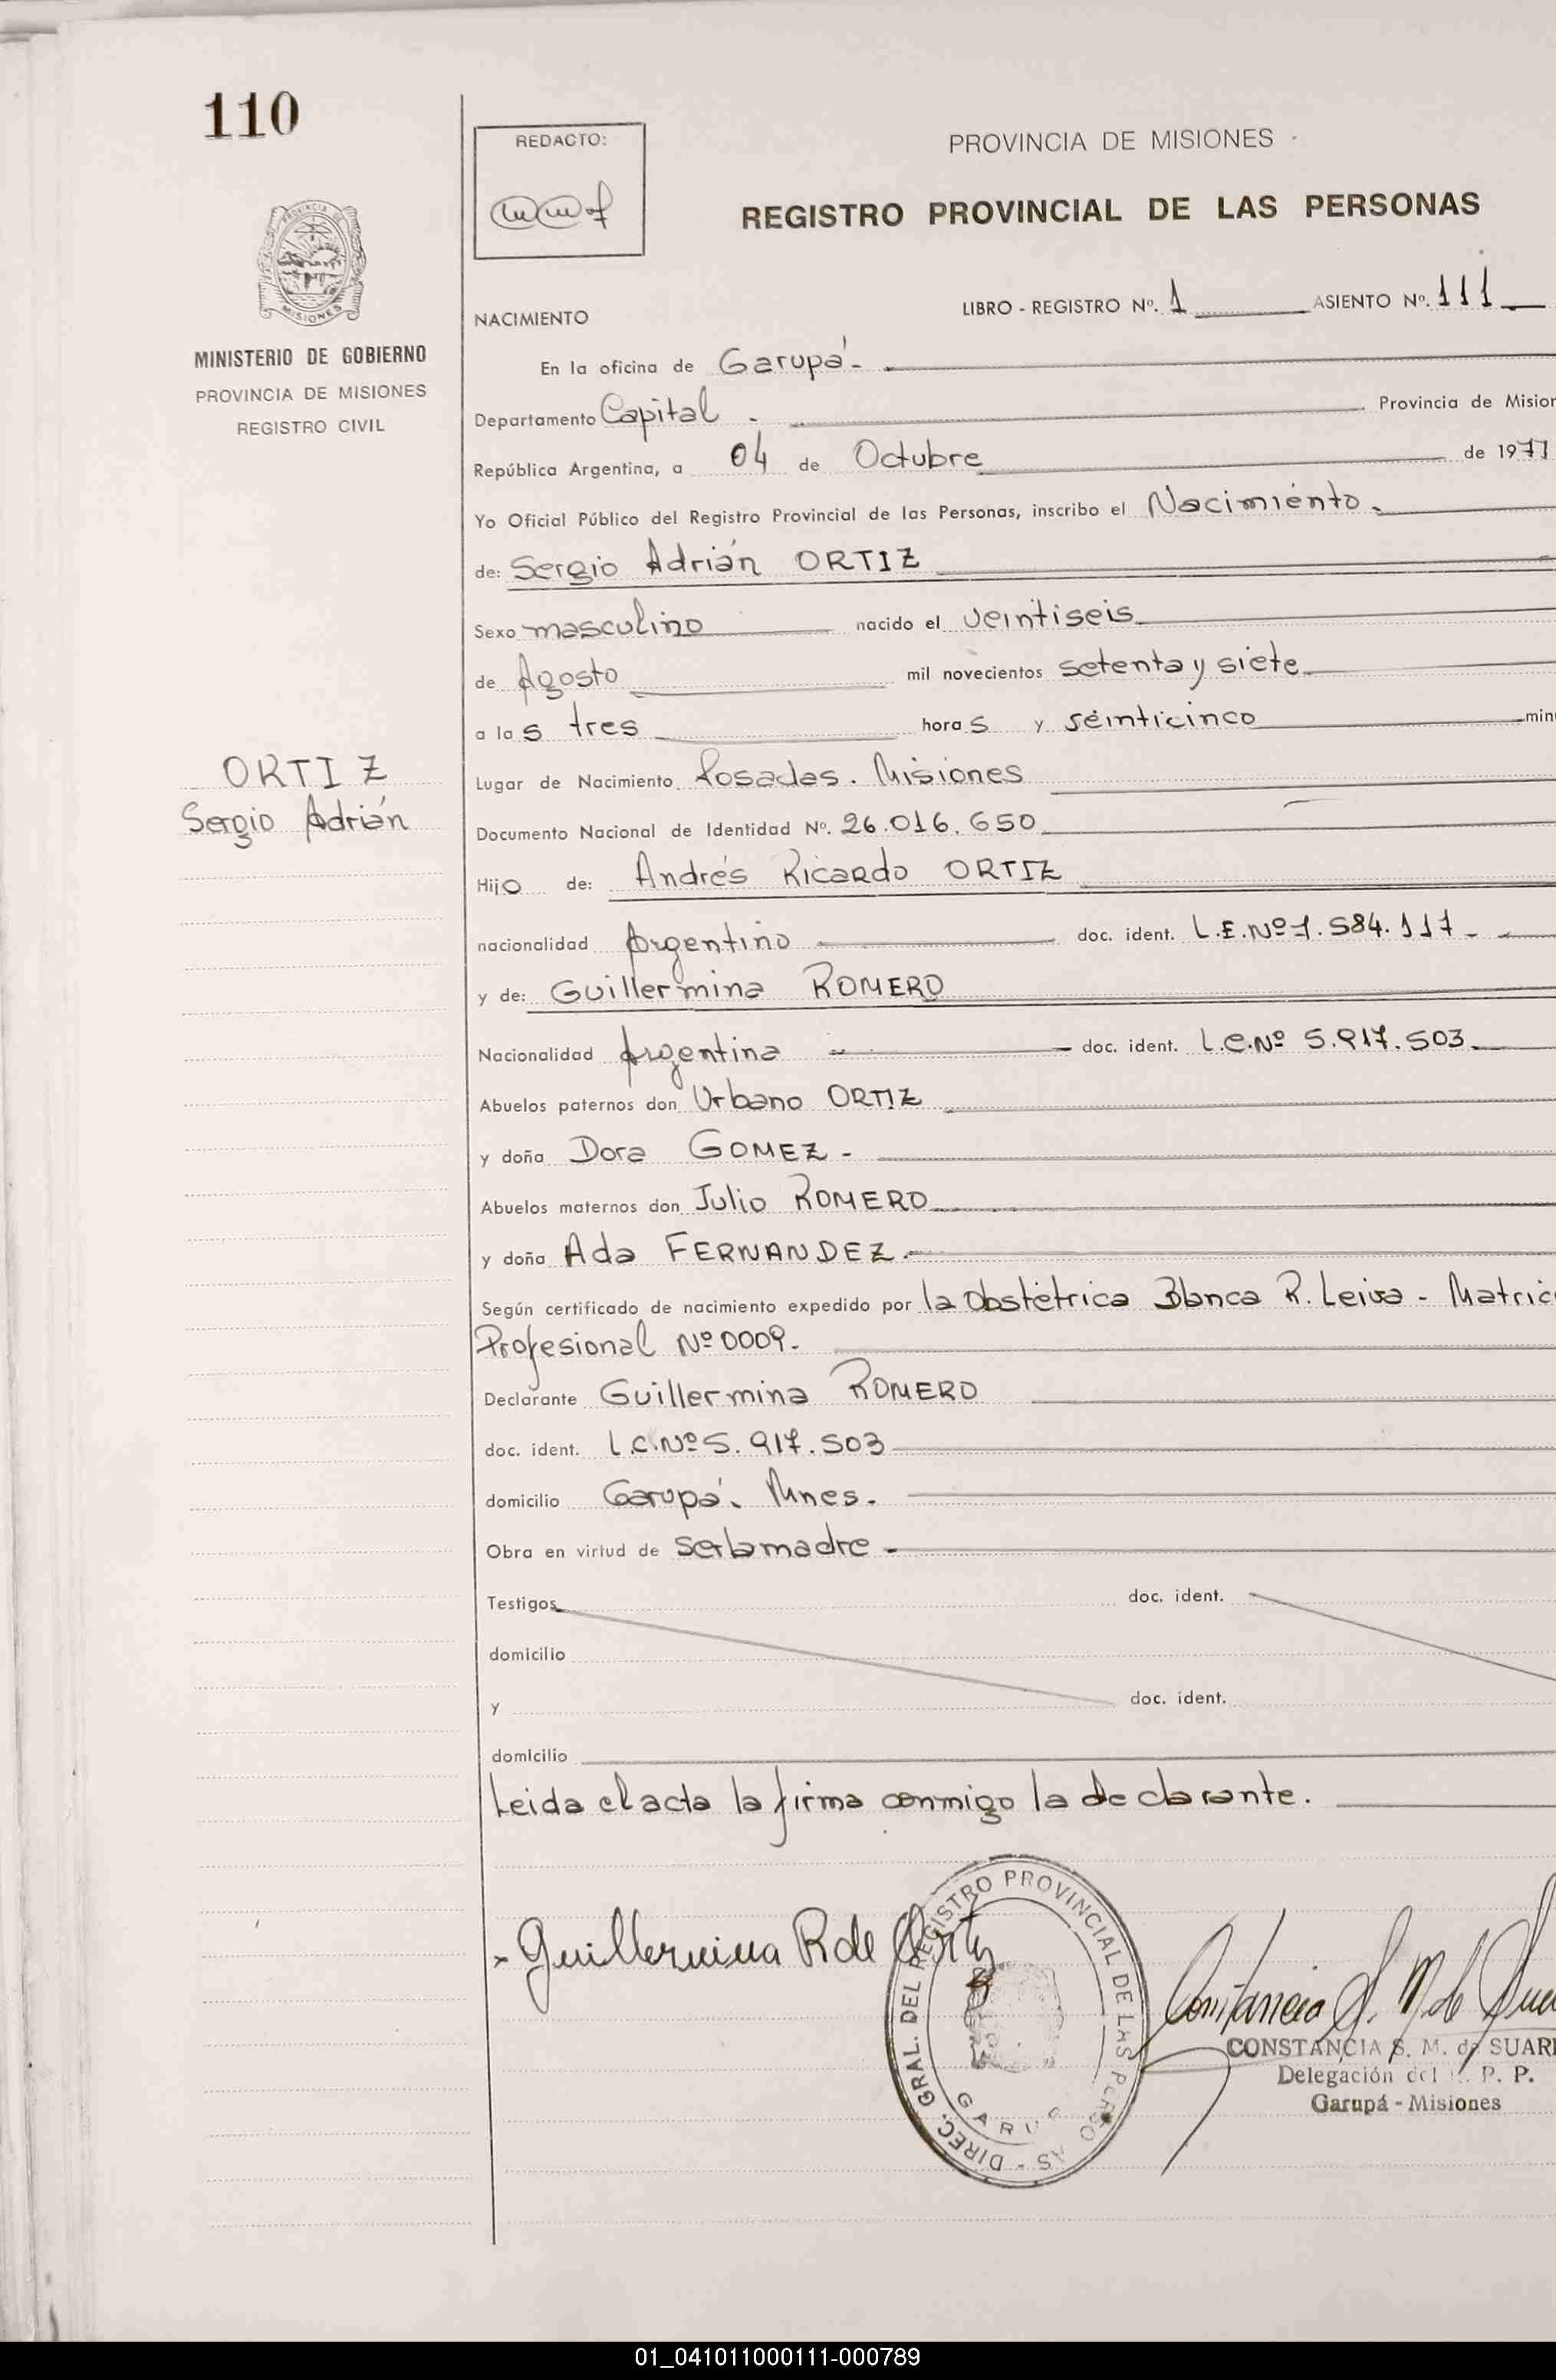 110
REDACTO:
PROVINCIA DE MISIONES
REGISTRO PROVINCIAL DE LAS PERSONAS
PROVINCIA DE
MISIONES
MINISTERIO DE GOBIERNO
PROVINCIA DE MISIONES
REGISTRO CIVIL
LIBRO - REGISTRO Nº. 1 ASIENTO Nº. 111
NACIMIENTO
En la oficina de Garupá -
Departamento Capital . Provincia de Mision
República Argentina, a 04 de Octubre de 1977
Yo Oficial Público del Registro Provincial de las Personas, inscribo el Nacimiento.
de: Sergio Adrián ORTIZ
Sexo masculino nacido el veintiseis
de Agosto mil novecientos setenta y siete
a las tres horas y seinticinco min
ORTIZ
Sergio Adrián
Lugar de Nacimiento Posadas. Misiones
Documento Nacional de Identidad Nº. 26.016.650
Hijo de: Andrés Ricardo ORTIZ
nacionalidad Argentino doc. ident. L.E.Nº 7.584.117 -
y de: Guillermina ROMERO
Nacionalidad Argentina doc. ident. L.C.Nº 5.917.503
Abuelos paternos don Urbano ORTIZ
y doña Dora GOMEZ -
Abuelos maternos don Julio ROMERO
y doña Ada FERNANDEZ.
Según certificado de nacimiento expedido por la Obstétrica Blanca R. Leiva - Matric
Profesional Nº 0009.
Declarante Guillermina ROMERO
doc. ident. L.C.Nº 5.917.503
domicilio Garupá. Mnes.
Obra en virtud de ser la madre -
Testigos doc. ident.
domicilio
y doc. ident.
domicilio
Leida el acta la firma conmigo la declarante.
Guillermina R de Ortiz
DIREC. GRAL. DEL REGISTRO PROVINCIAL DE LAS PERSO AS -
GARU
Constancia S. M. de Sua
CONSTANCIA S. M. de SUAR
Delegación del P. P.
Garupá - Misiones
01_041011000111-000789